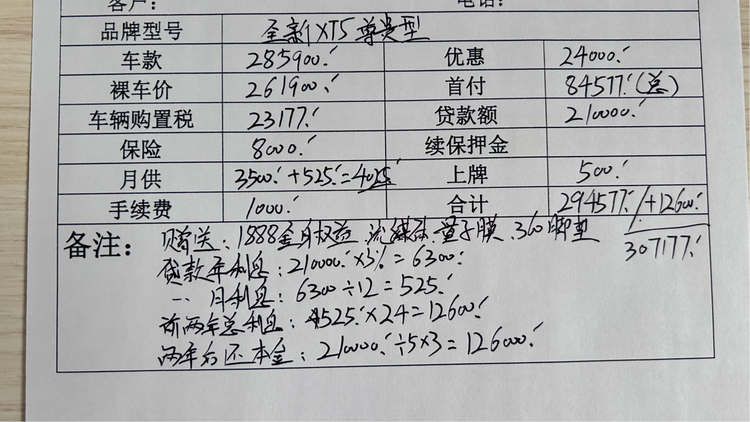 客户： 电话：
品牌型号 全新XT5尊贵型
车款 285900. 优惠 24000.
裸车价 261900. 首付 84577.(总)
车辆购置税 23177. 贷款额 210000.
保险 8000. 续保押金
月供 3500.+525.=4025 上牌 500.
手续费 1000. 合计 294577./+12600.
307177.
备注： 赠送：1888全身权益 流媒体 量子膜 360脚垫
贷款年利息：210000.×3%=6300.
一月利息：6300÷12=525.
前两年总利息：525.×24=12600.
两年后还本金：210000.÷5×3=126000.